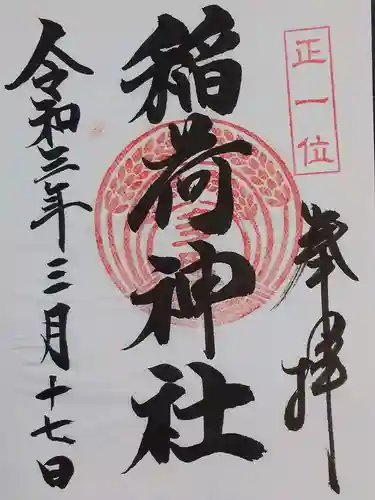 正一位
奉拝
稲荷神社
令和三年三月十七日